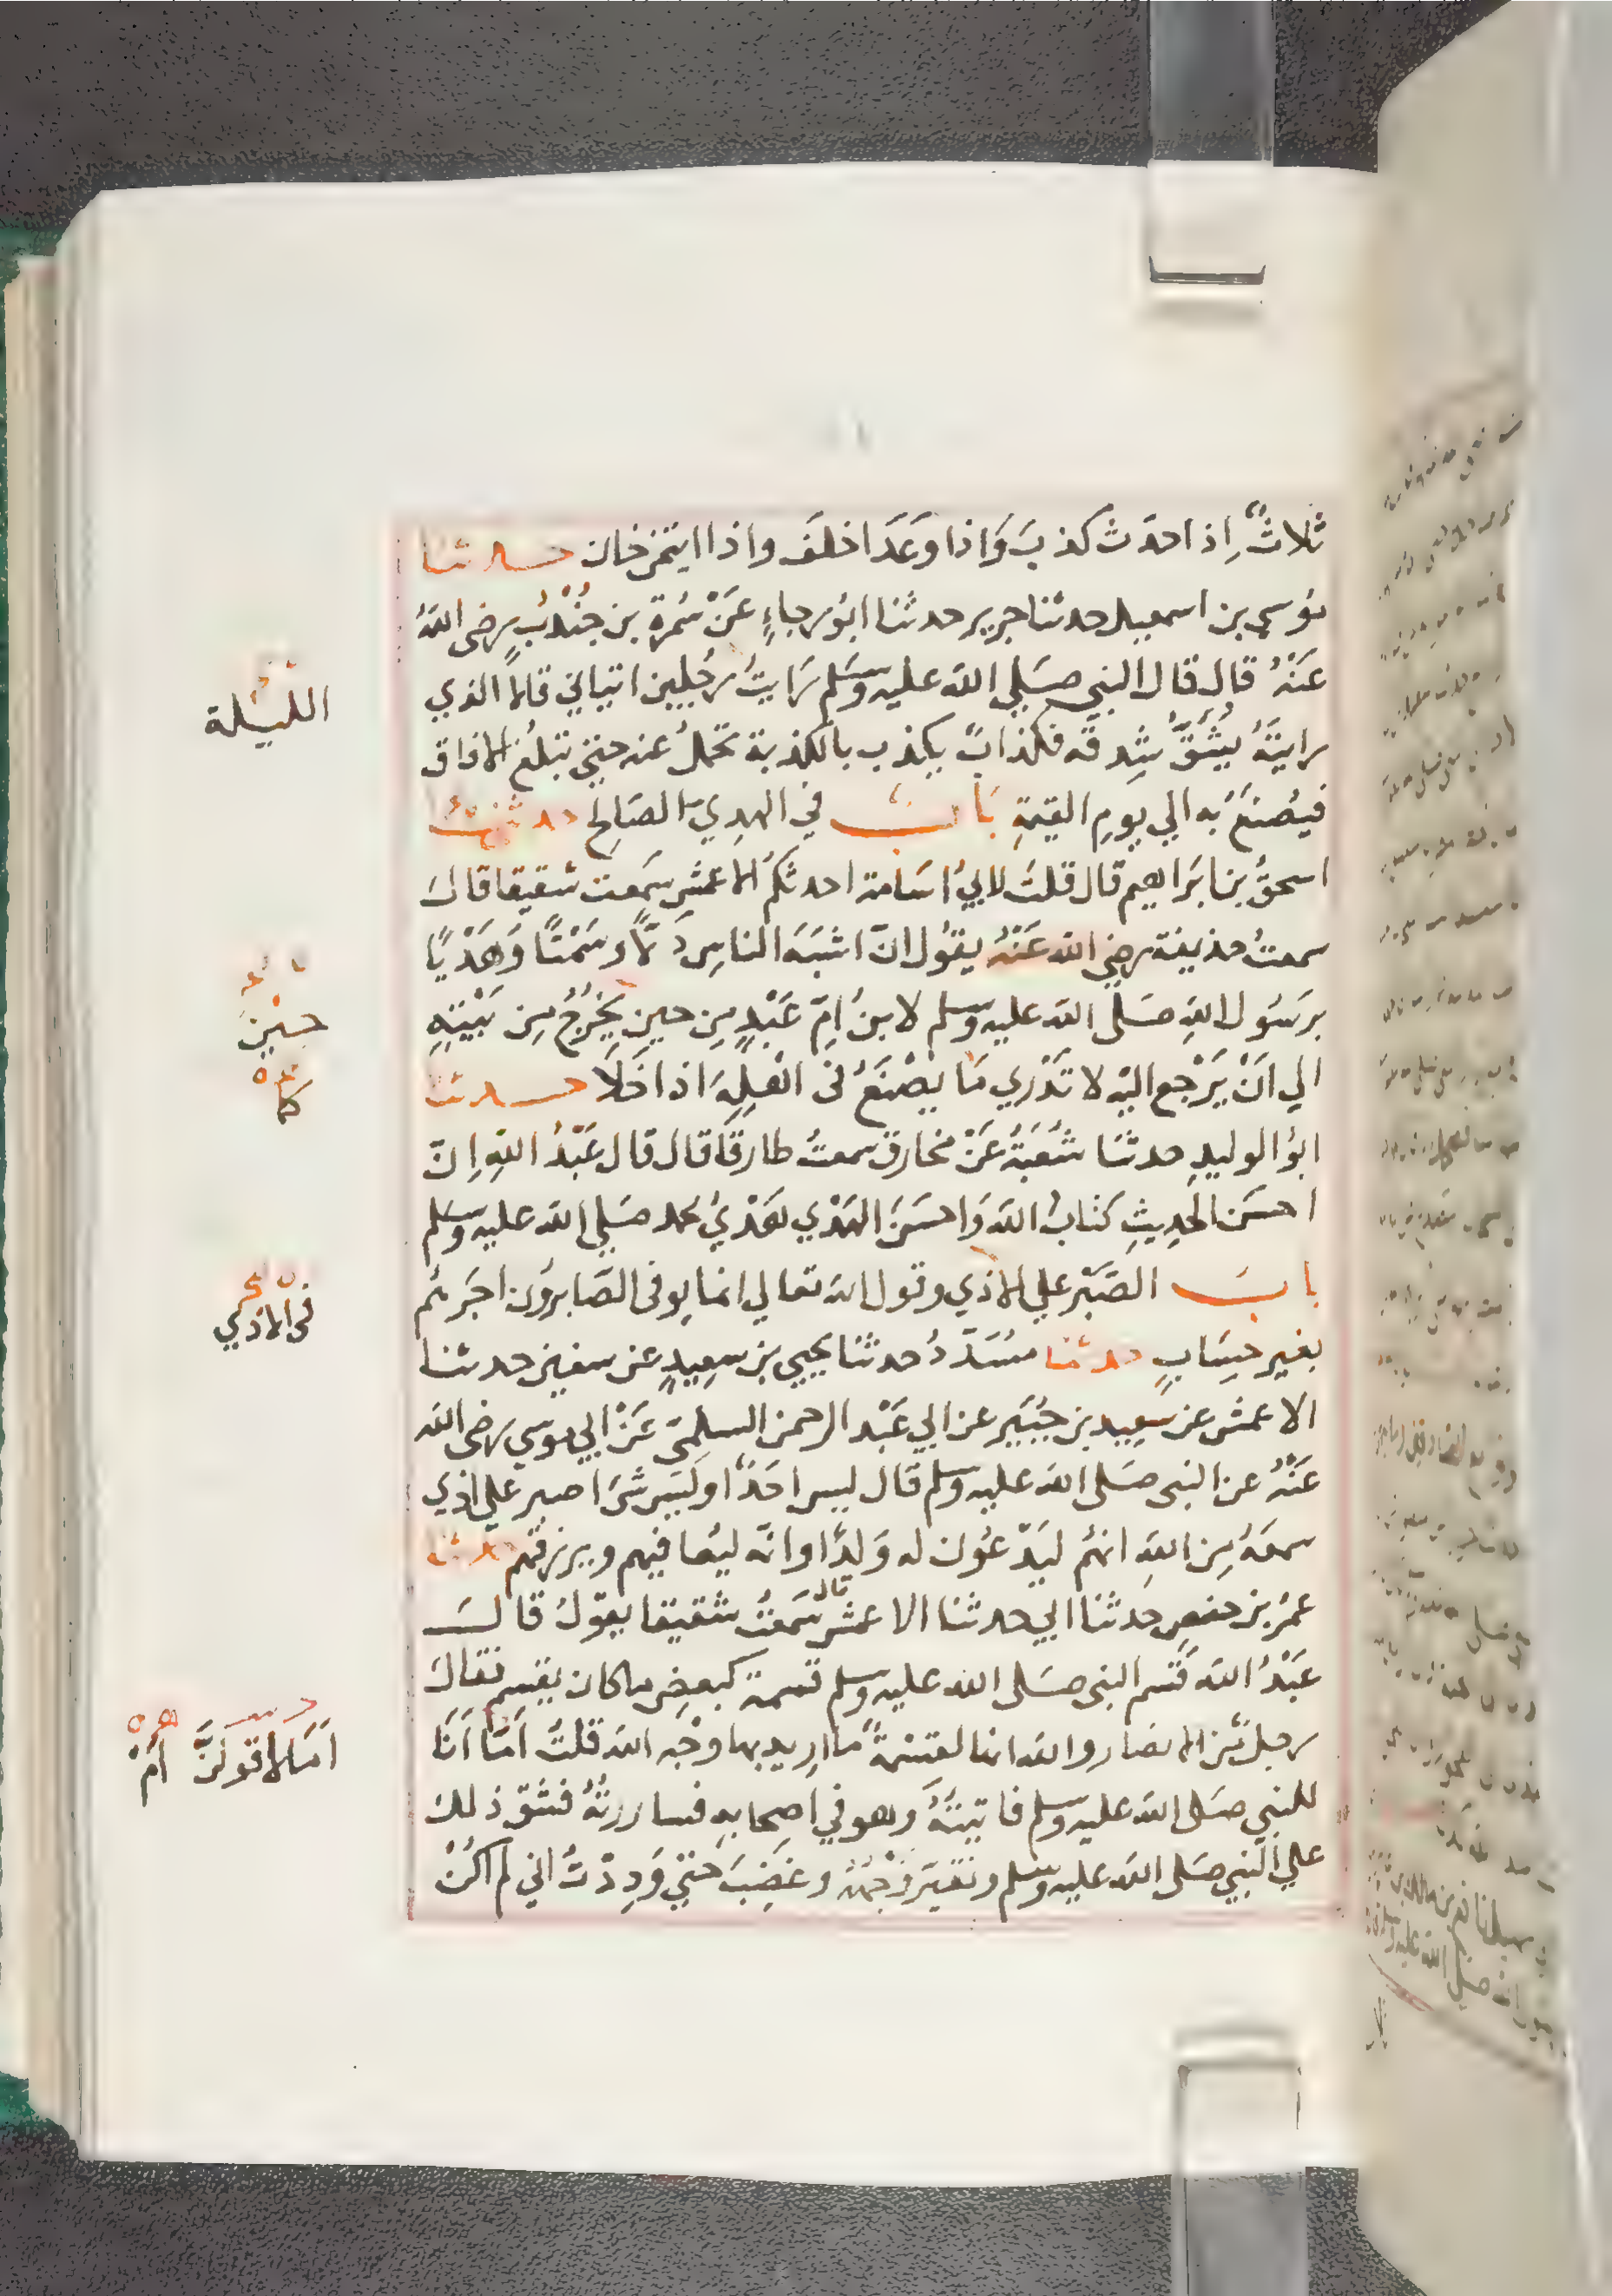 ثلاثٌ اِذا حدَث كذبَ وَاذا وَعَدَ اخلفَ واذا ايتمن خان حدثنا
مُوسي بن اسمعيل حدثنا جرير حدثنا ابُو رجاءٍ عَنْ سَمُرة بن جُنْدُبٍ رضى اللهُ
عَنْهُ قال قال النبي صَلي الله عليه وسَلم رَايتُ رجُلين اتياني قالا الذي
الليْلة
رايتَهُ يُشَقُّ شِدقه فكذابٌ يكذب بالكذبة تحملُ عنه حتى تبلُغ الافاق
فيُصْنَعُ به الي يومِ القيمةِ بَابُ في الهدي الصَالح حدثني
اسحقُ بن ابرَاهيم قال قلتُ لابيُ اسَامة احدثكُم الاعمش سَمعت شقيقا قال
سمعتُ حذيفة رضي الله عَنْهُ يقُول انّ اشبَهَ الناسِ دَلًّا وسَمْتًا وَهَدْيًا
برَسُول اللهِ صَلى الله عليه وسلم لابنُ اُمّ عَبْدٍ مِن حينِ يَخْرُجُ مِن بَيْتِهِ
حِيْن
الي اَنْ يَرْجع اليْه لا تَدْري مَا يصْنَعُ فى اهْلِهِ اذا خَلاَ حدثنا
ابوُ الوليدِ حدثنا شُعْبَةُ عَنْ مخارق سمعتُ طارقًا قال قال عَبْدُ اللهِ اِنّ
احسَن الحَدِيثِ كتَابُ الله وَاحسَنَ الهَدْي هَدْيُ محمد صَلي الله عليه وسَلم
بابَ الصَّبْر علي الاذي وقول الله تعالي انما يوفى الصَّابرُون اجرهُم
فى الاذي
بغير حِسَابٍ حدثنا مسَُدَّدُ حدثنا يحيي بن سعِيدٍ عن سفين حدثنا
الاعمش عن سعيد بن جُبَيرٍ عن ابي عَبْد الرحمن السلميّ عَنْ ابي موسي رضى الله
عَنْهُ عن النبى صَلى الله عليه وسلم قال ليس احَدٌ او لَيْسَ شئ اصبر علي اذي
سمعَهُ مِن اللهِ انهُم ليَدْعُون له وَلدًا وانّه ليُعافيهم ويرزقهم حدثنا
عمرُ بن حفصٍ حدثنا ابي حدثنا الاعمش قال سَمعتُ شقيقا يقوّلُ قال
عَبْدُ الله قَسَم النبى صَلى الله عليه وسلم قسمة كبعضِ ما كان يقسِم فقال
رجلٌ مّن الانصار والله انها لقسْمةٌ ما اريد بها وجْه الله قلتُ اَمّا اَنَا
اَمَا لاقولَنَّ اَمْ
للنبي صَلى الله عليه وسلم فاتيتُهُ وهو في اصحابِهِ فساررتهُ فشقّ ذلك
علي النبي صَلى الله عليه وسلم وتغيَّر وَجْههُ وغضِبَ حتي وَدِدْتُ اني لم اكُنْ